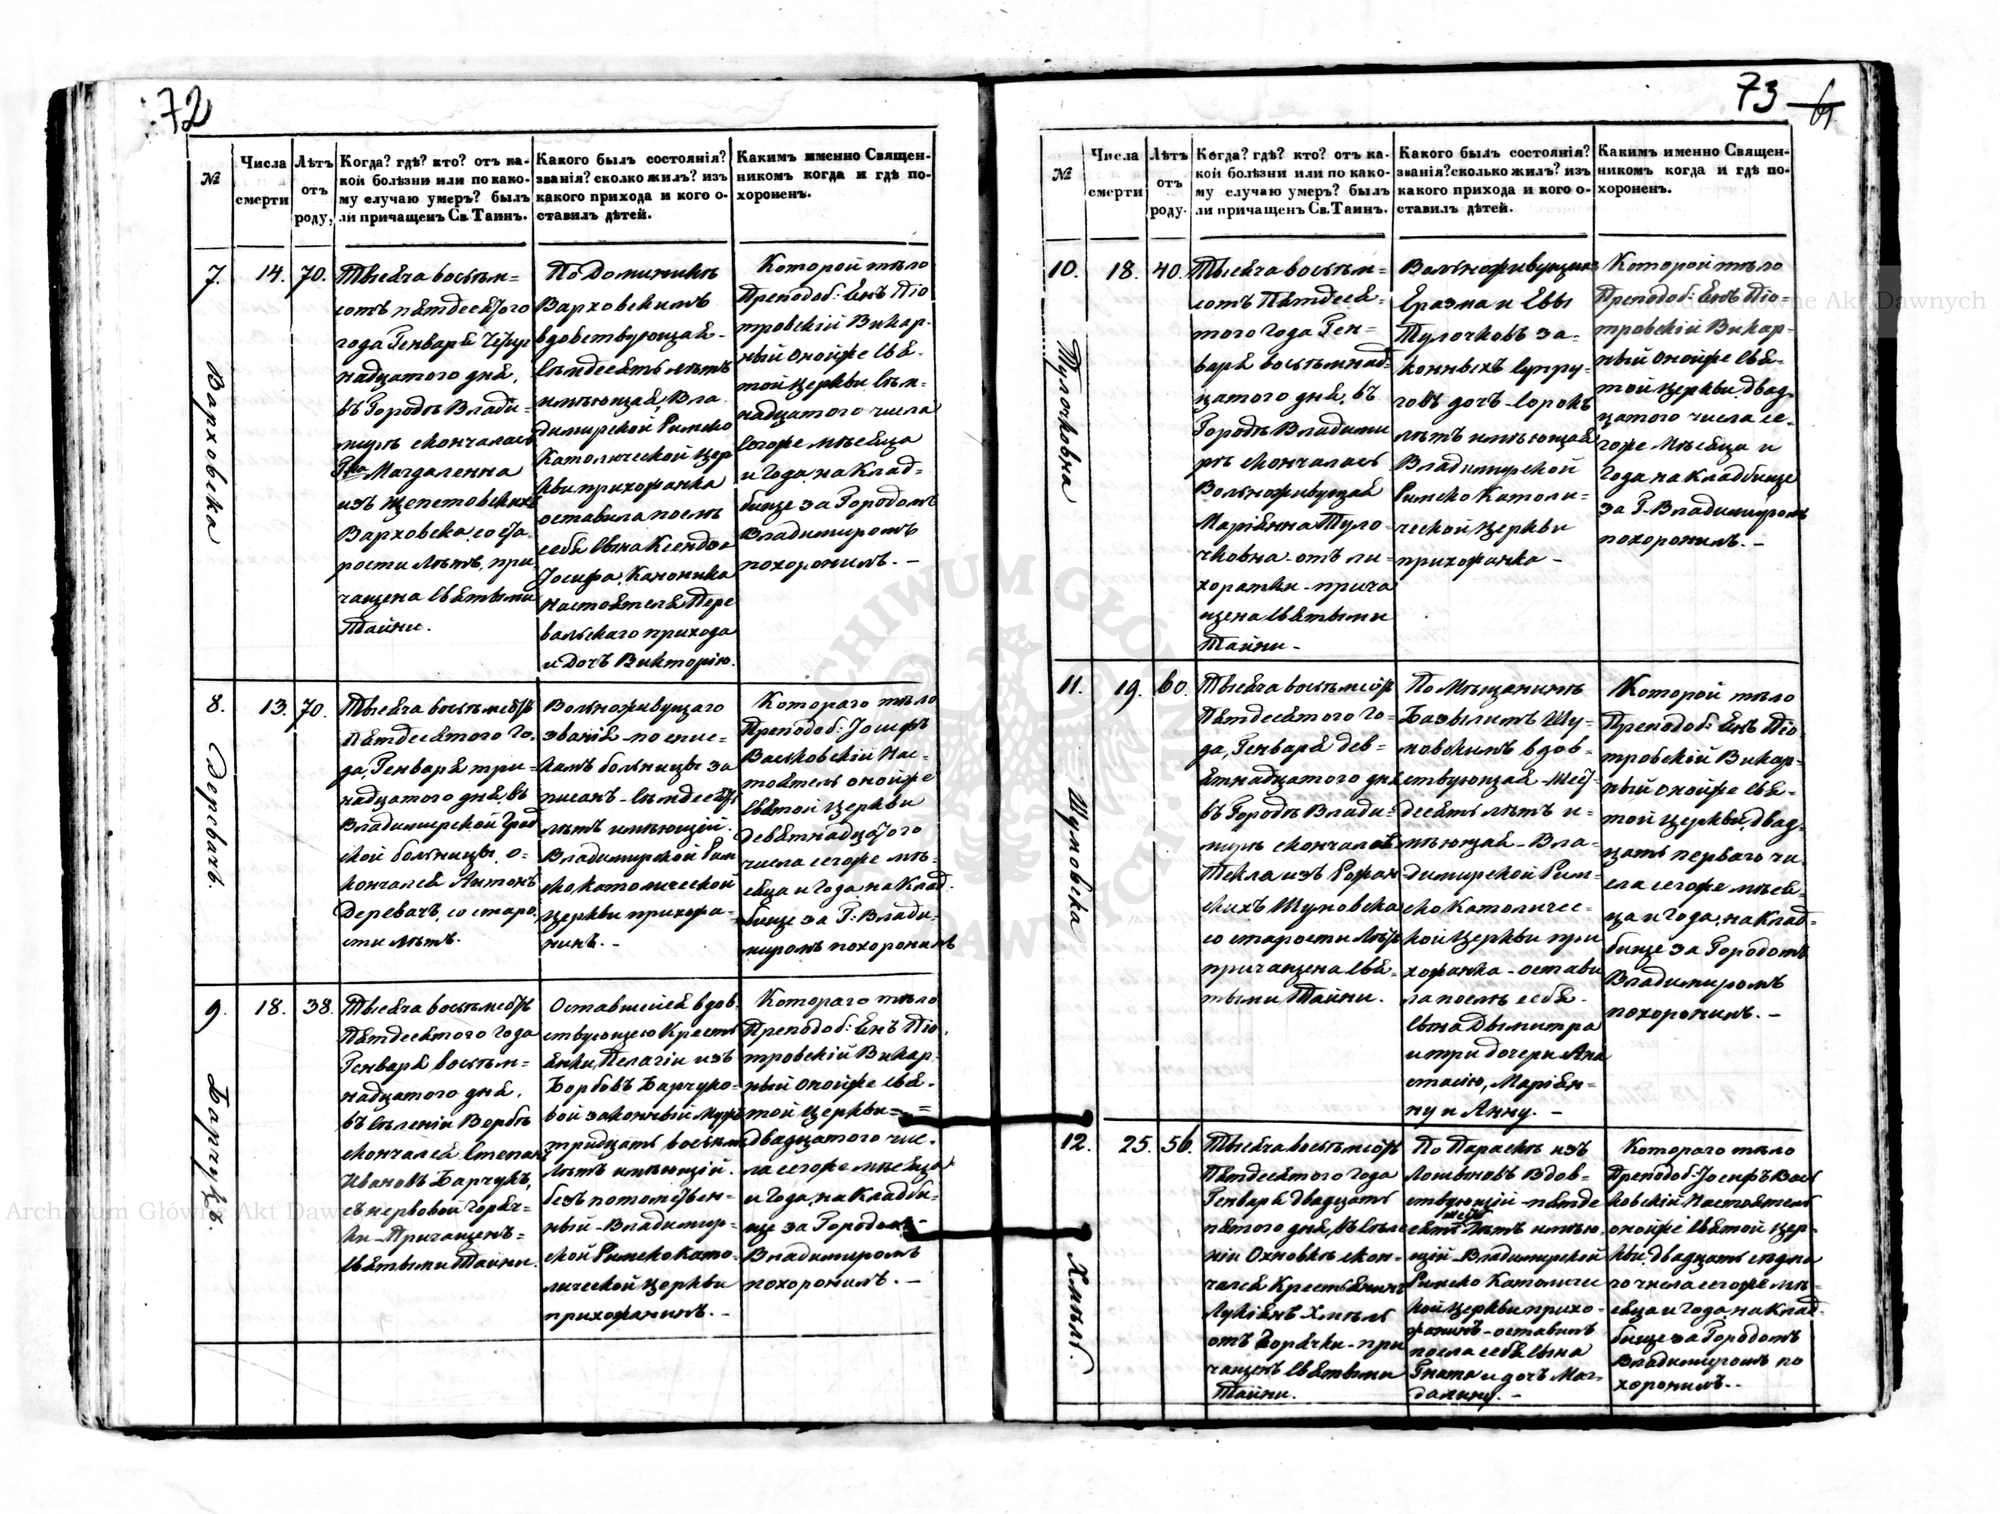 72
№
Числа смерти
Лѣтъ отъ роду,
Когда? гдѣ? кто? отъ ка-
кой болѣзни или по како-
му случаю умеръ? былъ
ли причащенъ Св. Таинъ.
Какого былъ состоянія?
званія? сколко жилъ? изъ
какого прихода и кого о-
ставилъ дѣтей.
Каким именно Священ-
никомъ когда и гдѣ по-
хороненъ.
7.
Варховска
14.
70.
Тысяча восъм=
сотъ пятдесятого
года Генваря Четыр
надцатого дня,
въ Городѣ Влади-
мирѣ скончалась
Гна Магдаленна
изъ Щепетовскихъ
Варховска, со ста
рости лѣтъ, при
чащена Святыми
Тайни.
По Доминикѣ
Варховскимъ
вдовствующая-
семдесятъ лѣтъ
имѣющая, Вла
димирской Римско
Католической Цер
кви прихожанка
оставила послѣ
себя сына Ксендза
Іосифа, Каноника
настоятеля Пере
вальского прихода
и дочъ Викторію.
Которой тѣло
Преподоб: Енъ Піо
тровскій Викар-
ный онойже Свя-
той Церкви сем-
надцатого числа
сегоже мѣсяца
и Года, на Клад=
бище за Городомъ
Владимиромъ
похоронилъ. -
8.
Деревачъ.
13.
70.
Тысяча восъмсотъ
Пятдесятого Го-
да, Генваря три-
надцатого дня, въ
Владимирской Град
ской больницы, с-
кончался Антонъ
Деревачъ, со старо
сти лѣтъ.
Вольноживущаго
званія - по спис-
камъ больницы за
писанъ - семдесятъ
лѣтъ имѣющій.
Владимирской Рим
ско Католической
Церкви прихожа-
нинъ. -
Которого тѣло
Преподоб: Іосифъ
Васьковскій Нас-
тоятель онойже
Святой Церкви
девятнадцатого
числа сегоже мѣ-
сяца и Года, на Клад
бище за Г: Влади-
миромъ похоронилъ
9.
Барчукъ.
18.
38.
Тысяча восъмсотъ
Пятдесятого Года
Генваря восъм-
надцатого дня,
въ Селеніи Вербѣ
скончался Степанъ
Ивановъ Барчукъ,
съ нервовой Горяч-
ки - Причащенъ-
Святыми Тайни.
Оставшейся вдов
ствующею Кресть
янки, Пелагіи изъ
Борбовъ Барчуко-
вой законный мужъ
тридцатъ восъмъ
лѣтъ имѣющій.
безъ потомствен-
ный - Владимир-
ской Римско Като-
лической Церкви
прихожанинъ. -
Которого тѣло
Преподоб: Енъ Піо
тровскій Викар-
ный онойже Свя-
той Церкви =
двадцатого чис-
ла сегоже мѣсяца
и Года, на Кладби-
ще за Городомъ -
Владимиромъ
похоронилъ. -
73
№
Числа смерти
Лѣтъ отъ роду.
Когда? гдѣ? кто? отъ ка-
кой болѣзни или по како-
му случаю умеръ? былъ
ли причащенъ Св. Таинъ.
Какого былъ состоянія?
званія? сколко жилъ? изъ
какого прихода и кого о-
ставилъ дѣтей.
Каким именно Священ-
никомъ когда и гдѣ по-
хороненъ.
10.
Тулочковна
18.
40.
Тысяча восъм=
сотъ Пятдеся-
того Года Ген=
варя восъмнад-
цатого дня, въ
Городѣ Владими
рѣ скончалась
Вольноживущая
Маріянна Туло-
чковна - отъ ли-
хорадки - прича
щена Святыми
Тайни -
Вольноживущихъ
Еразма и Евы
Тулочковъ за-
конныхъ супру-
говъ дочъ - сорокъ
лѣтъ имѣющая
Владимирской
Римско Католи-
ческой Церкви
прихожанка -
Которой тѣло
Преподоб: Енъ Піо-
тровскій Викар-
ный онойже Свя-
той Церкви, двад-
цатого числа се-
гоже Мѣсяца и
Года, на Кладбище
за Г. Владимиромъ
похоронилъ. -
11.
Шуновска
19.
60.
Тысяча восъмсотъ
Пятдесятого Го-
да, Генваря дев-
ятнадцатого дня
въ Городѣ Влади-
мирѣ скончалась
Текла изъ Рожан
скихъ Шуновска
со старости лѣтъ
причащена Свя-
тыми Тайни.
По Мѣщанинѣ
Базылимъ Шу-
новскимъ вдов-
ствующая - Шест-
десятъ лѣтъ и-
мѣющая - Вла-
димирской Рим-
ско Католичес-
кой Церкви при
хожанка - остави
ла послѣ себя -
сына Дымитра
и три дочери Ана
стасію, Маріян-
ну и Анну. -
Которой тѣло
Преподоб: Енъ Піо
тровскій Викар-
ный онойже Свя-
той Церкви, двад-
цатъ первого чи-
сла сегоже мѣся-
ца и Года, на Клад-
бище за Городомъ
Владимиромъ
похоронилъ. -
12.
Хмѣль.
25.
56.
Тысяча восъмсотъ
Пятдесятого Года
Генваря двадцатъ
пятого дня, въ Селе
ніи Охновкѣ скон-
чался Крестьянинъ
Лукіянъ Хмѣль
отъ Горячки - при
чащенъ Святыми
Тайни.
По Параскѣ изъ
вдов-
ствующій - пятде
сятъ шесть лѣтъ имѣю
щій - Владимирской
Римско Католичес
кой Церкви прихо-
жанинъ - оставилъ
послѣ себя сына
Гната и дочъ Маг-
далину. -
Которого тѣло
Преподоб: Іосифъ Вась
ковскій Настоятель
онойже Святой Цер-
кви, двадцатъ седмо
го числа сегоже мѣ-
сяца и Года, на Клад-
бище за Городомъ
Владимиромъ по
хоронилъ. -
Archiwum Główne Akt Dawnych